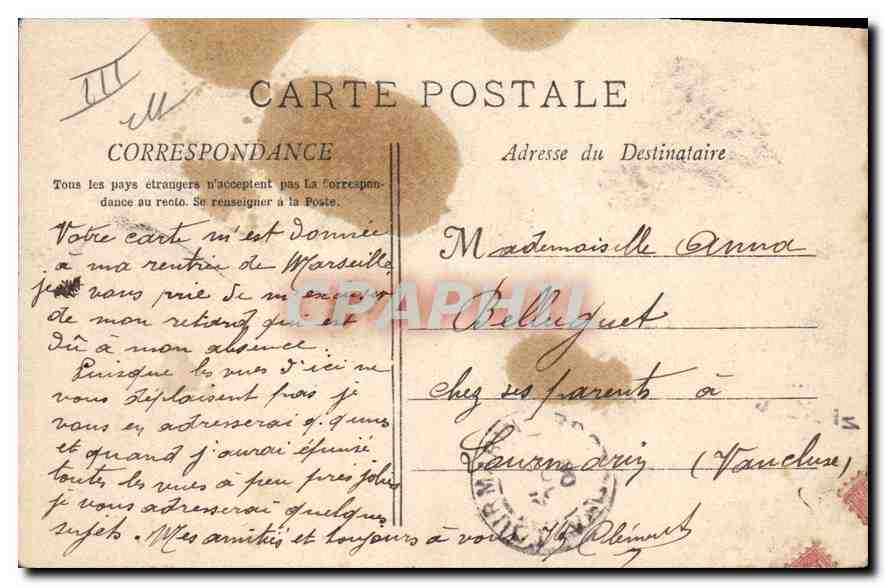 III
CARTE POSTALE
CORRESPONDANCE
Tous les pays étrangers n'acceptent pas La Correspon-
dance au recto. Se renseigner à la Poste.
Votre carte m'est donnée
à ma rentrée de Marseille,
je vous prie de m'excuser
de mon retard qui est
dû à mon absence.
Puisque les vues d'ici ne
vous déplaisent pas je
vous en adresserai q.q'unes
et quand j'aurai épuisé
toutes les vues à peu près jolies
je vous adresserai quelques
sujets. Mes amitiés et toujours à vous Clément
Adresse du Destinataire
Mademoiselle Anna
Belluguet
chez ses parents à
Lourmarin (Vaucluse)
CPAPHIL